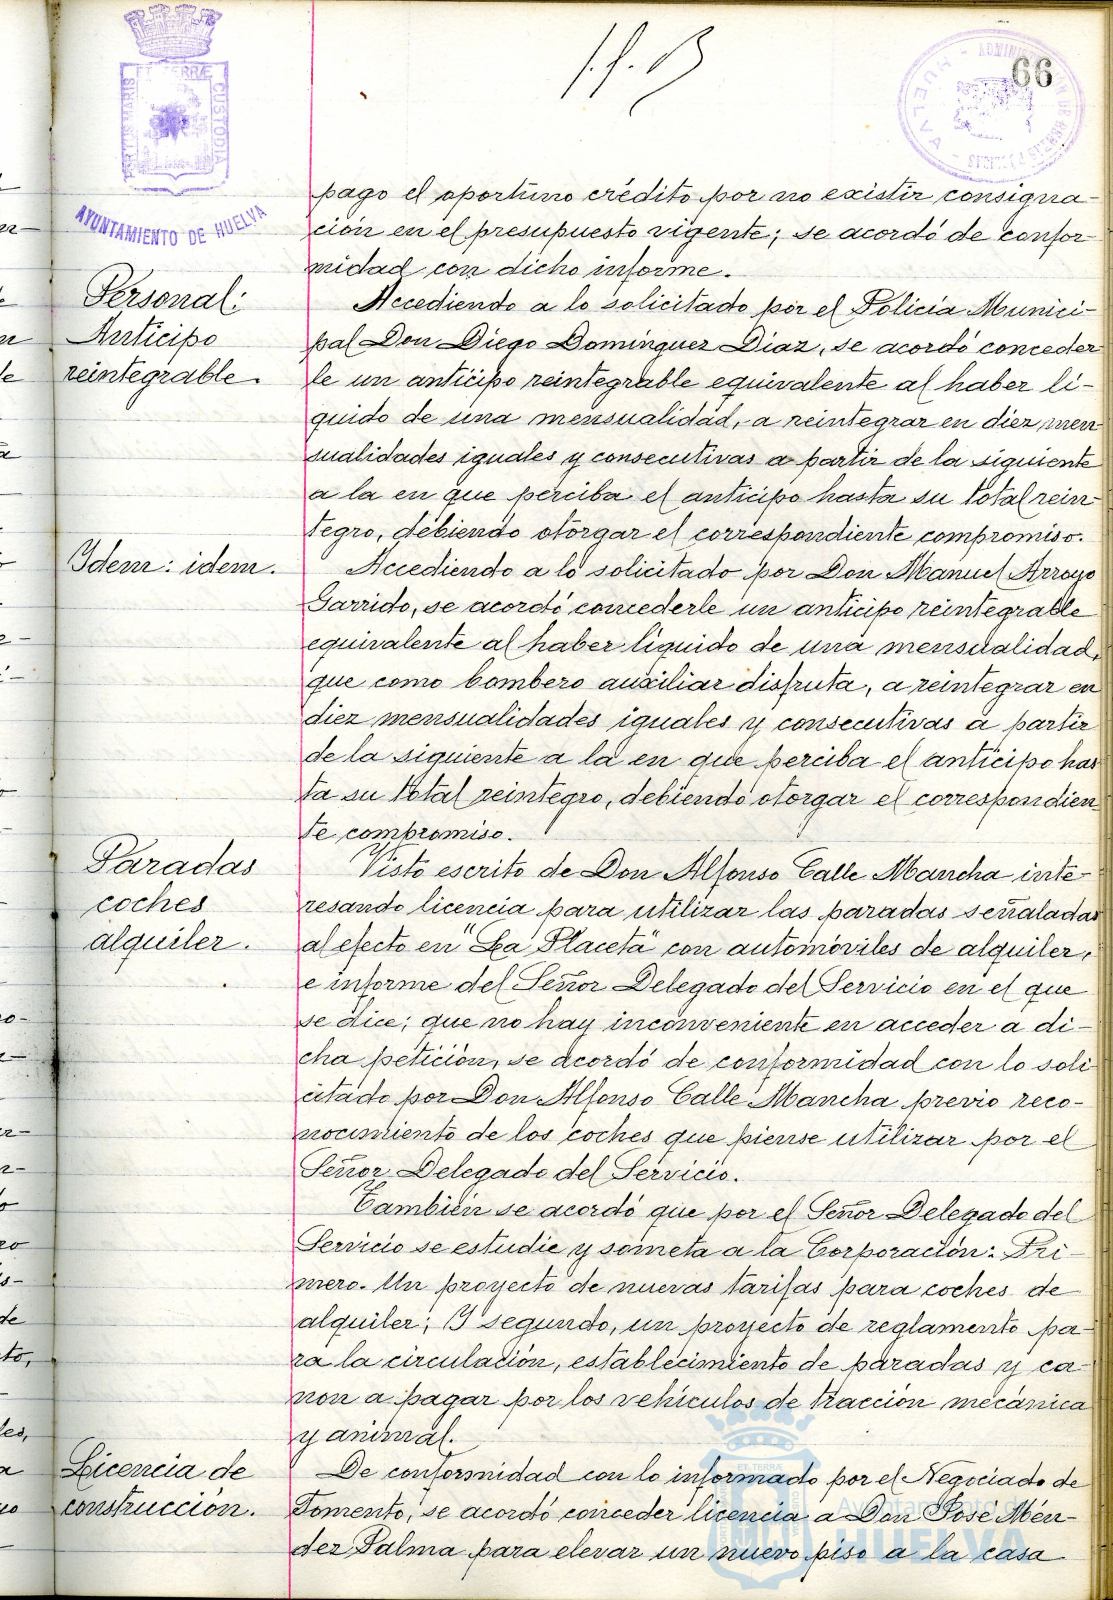 66
PORTUS MARIS ET TERRÆ CUSTODIA
AYUNTAMIENTO DE HUELVA
HUELVA
pago el oportuno crédito por no existir consigna-
ción en el presupuesto vigente; se acordó de confor-
midad con dicho informe.
Personal:
Anticipo
reintegrable.
Accediendo a lo solicitado por el Policía Munici-
pal Don Diego Domínguez Díaz, se acordó conceder
le un anticipo reintegrable equivalente al haber lí-
quido de una mensualidad, a reintegrar en diez men
sualidades iguales y consecutivas a partir de la siguiente
a la en que perciba el anticipo hasta su total rein-
tegro, debiendo otorgar el correspondiente compromiso.
Idem: idem.
Accediendo a lo solicitado por Don Manuel Arroyo
Garrido, se acordó concederle un anticipo reintegrable
equivalente al haber líquido de una mensualidad,
que como bombero auxiliar disfruta, a reintegrar en
diez mensualidades iguales y consecutivas a partir
de la siguiente a la en que perciba el anticipo has
ta su total reintegro, debiendo otorgar el correspondien
te compromiso.
Paradas
coches
alquiler.
Visto escrito de Don Alfonso Calle Mancha inte-
resando licencia para utilizar las paradas señaladas
al efecto en "La Placeta" con automóviles de alquiler,
e informe del Señor Delegado del Servicio en el que
se dice; que no hay inconveniente en acceder a di-
cha petición, se acordó de conformidad con lo soli
citado por Don Alfonso Calle Mancha previo reco-
nocimiento de los coches que piense utilizar por el
Señor Delegado del Servicio.
También se acordó que por el Señor Delegado del
Servicio se estudie y someta a la Corporación: Pri-
mero. Un proyecto de nuevas tarifas para coches de
alquiler; Y segundo, un proyecto de reglamento pa-
ra la circulación, establecimiento de paradas y ca-
non a pagar por los vehículos de tracción mecánica
y animal.
Licencia de
construcción.
De conformidad con lo informado por el Negociado de
Fomento, se acordó conceder licencia a Don José Mén-
dez Palma para elevar un nuevo piso a la casa
Ayuntamiento
HUELVA